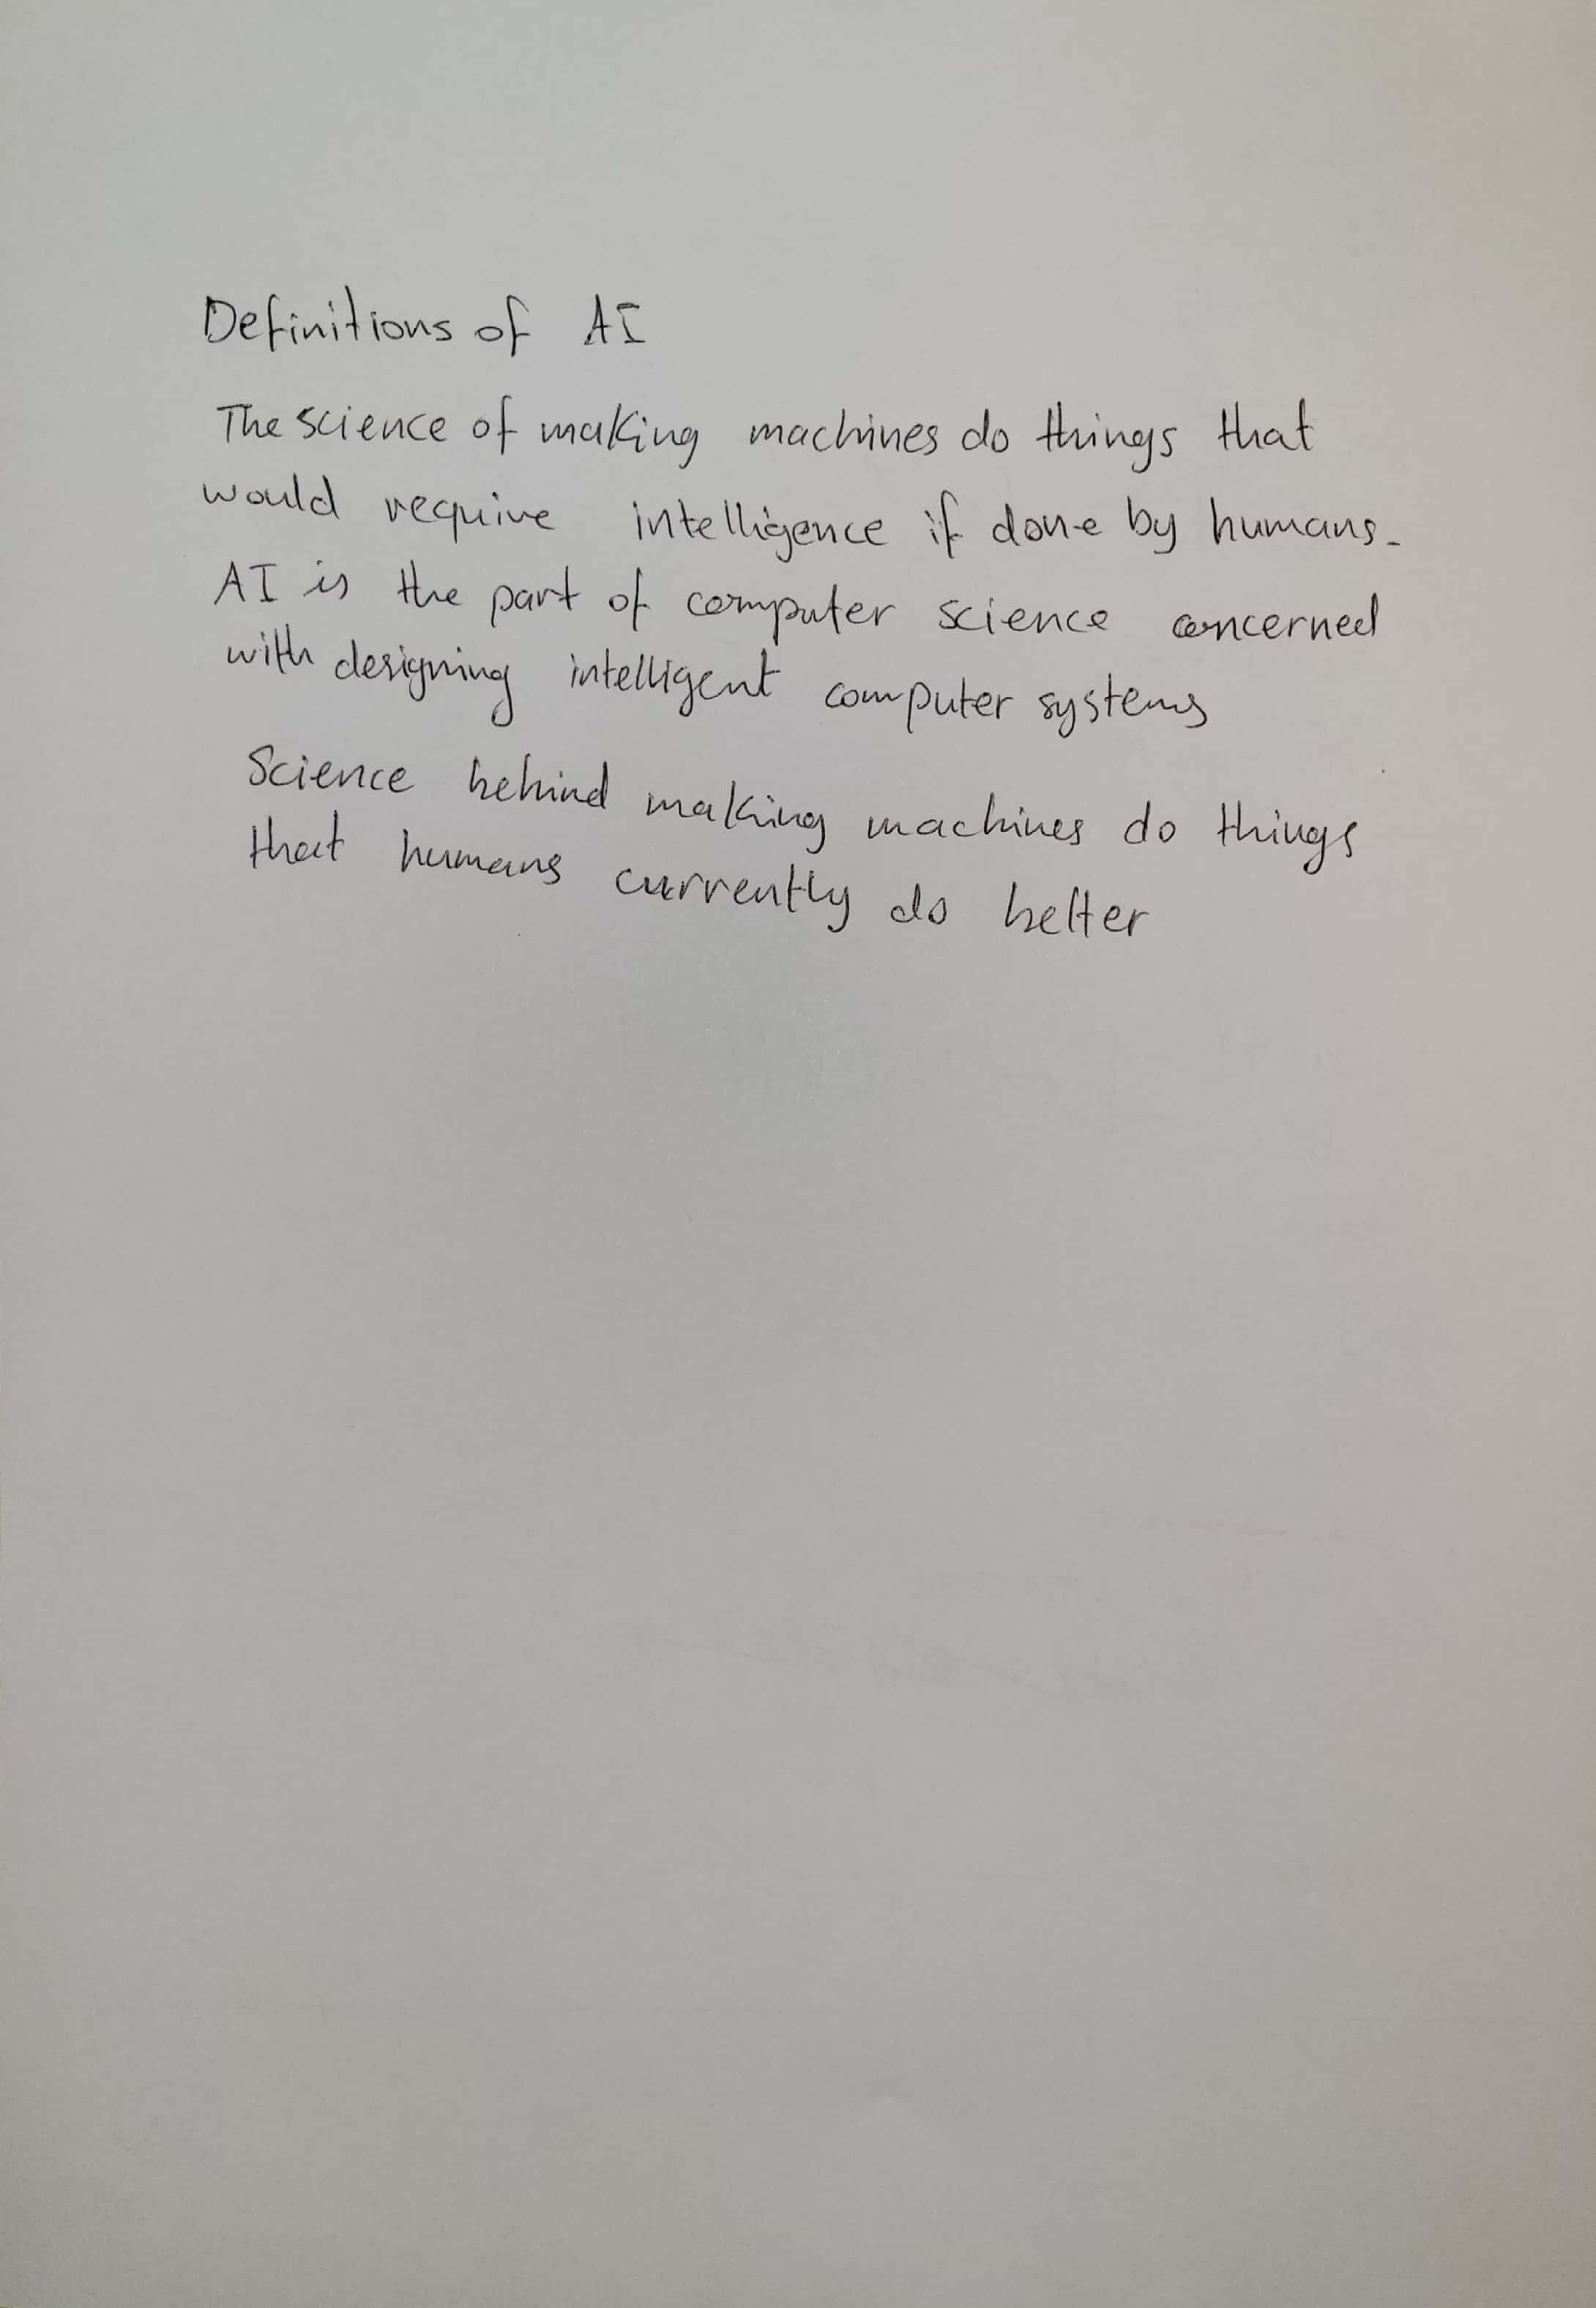 Definitions of AI
The science of making machines do things that
would require intelligence if done by humans.
AI is the part of computer science concerned
with designing intelligent computer systems
Science behind making machines do things
that humans currently do better